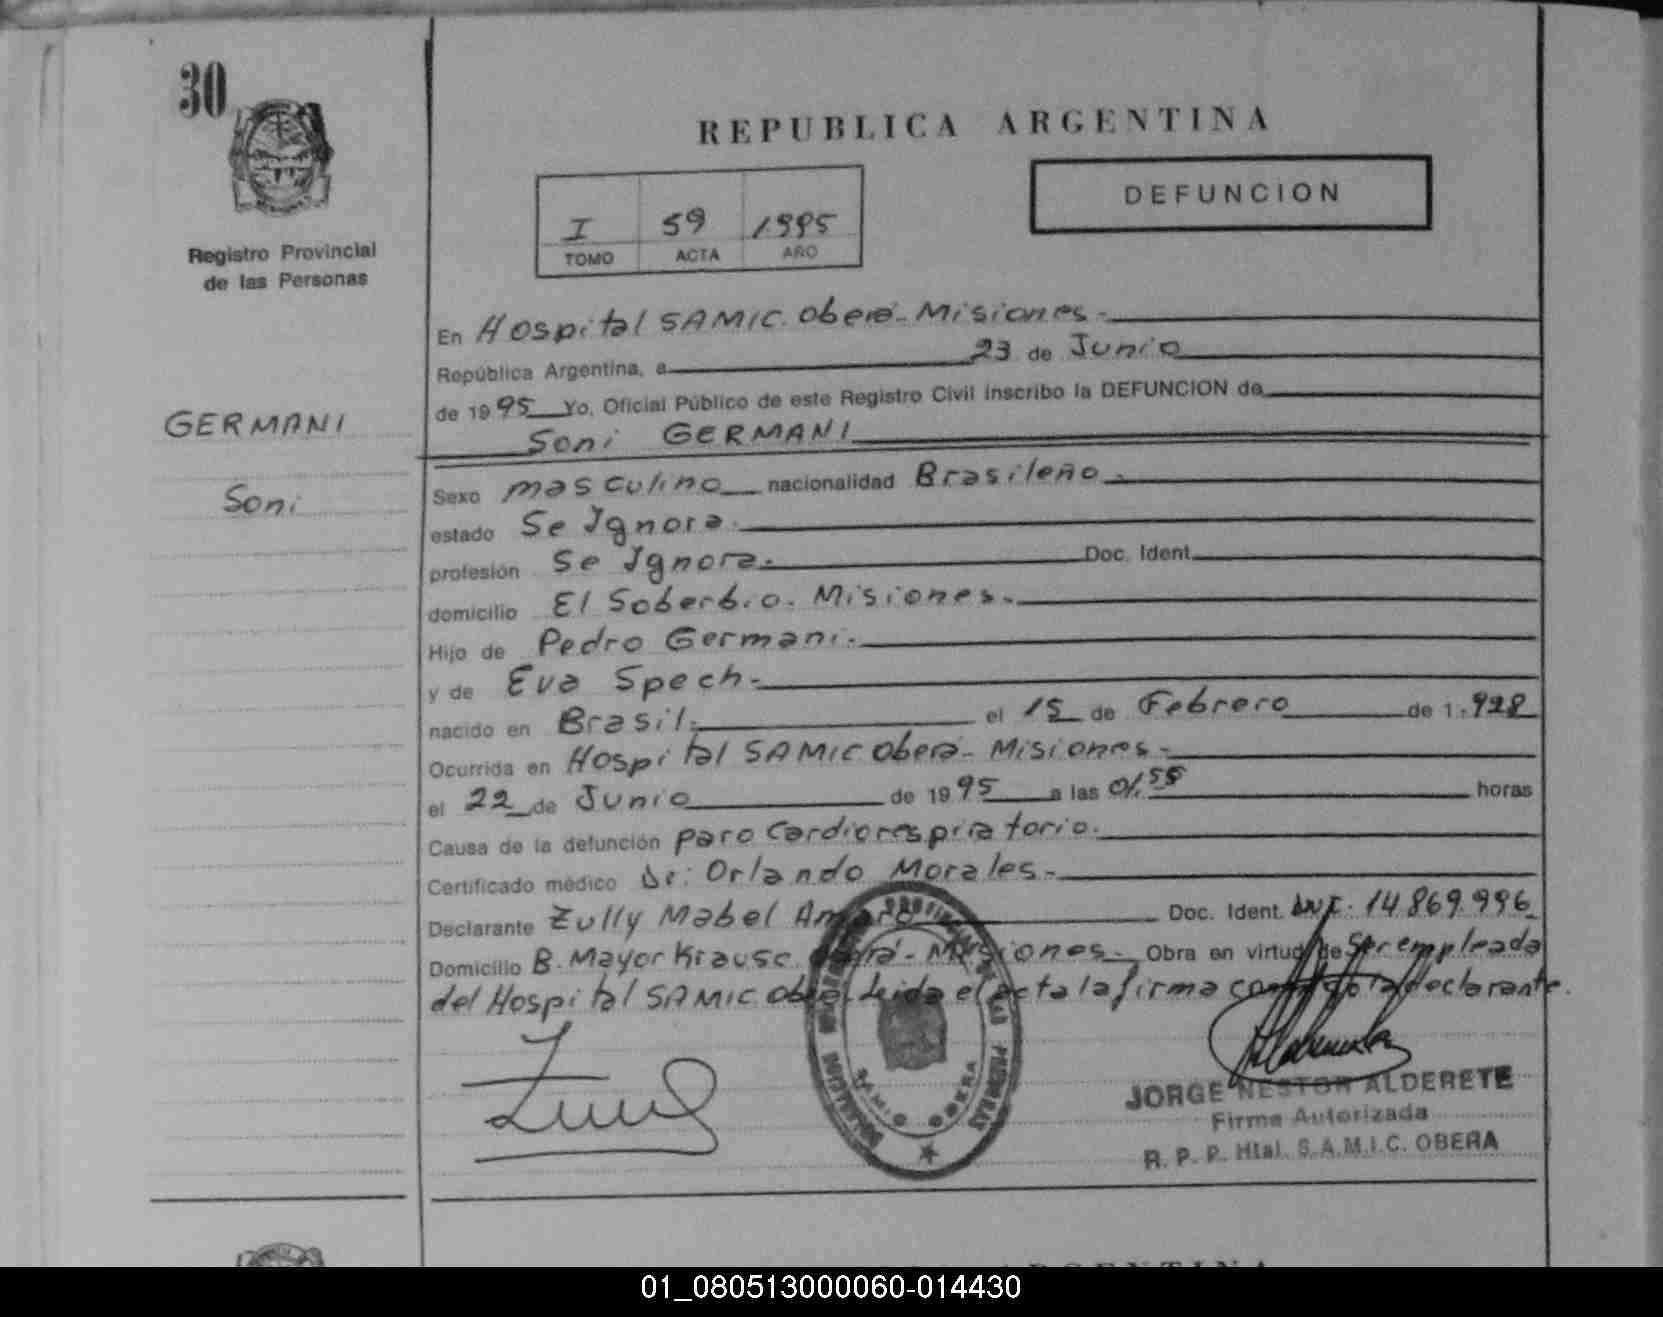 30
REPUBLICA ARGENTINA
DEFUNCION
I 59 1995
TOMO ACTA AÑO
Registro Provincial
de las Personas
GERMANI
Soni
En Hospital SAMIC. Oberá - Misiones -
República Argentina, a 23 de Junio
de 1995 Yo, Oficial Público de este Registro Civil inscribo la DEFUNCION de
Soni GERMANI
Sexo masculino nacionalidad Brasileño.
estado Se Ignora.
profesión Se Ignora. Doc. Ident.
domicilio El Soberbio. Misiones.
Hijo de Pedro Germani.
y de Eva Spech.
nacido en Brasil. el 15 de Febrero de 1.928
Ocurrida en Hospital SAMIC Oberá - Misiones -
el 22 de Junio de 1995 a las 01,55 horas
Causa de la defunción paro Cardiorespiratorio.
Certificado médico Dr: Orlando Morales.
Declarante Zully Mabel Amaro Doc. Ident. DNI. 14.869.996
Domicilio B. Mayor Krause. Oberá - Misiones. Obra en virtud de Ser empleada
del Hospital SAMIC Oberá. Leida el acta la firma conmigo la declarante.
SAMIC OBERA
JORGE NESTOR ALDERETE
Firma Autorizada
R. P. P. Htal. S.A.M.I.C. OBERA
ARGENTINA
01_080513000060-014430